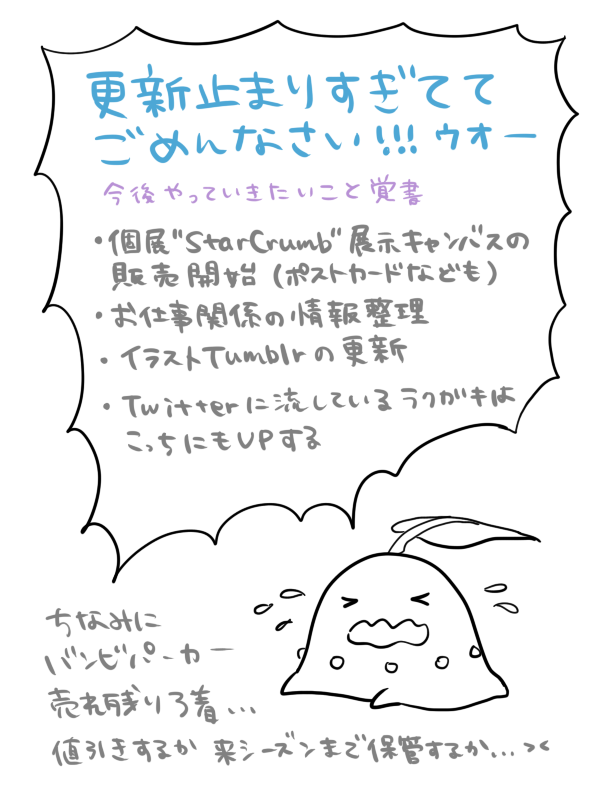 更新止まりすぎてて
ごめんなさい!!! ウオー
今後やっていきたいこと覚書
・個展"StarCrumb"展示キャンバスの
販売開始(ポストカードなども)
・お仕事関係の情報整理
・イラストTumblrの更新
・Twitterに流しているラクガキは
こっちにもUPする
ちなみに
バンビパーカー
売れ残り3着...
値引きするか 来シーズンまで保管するか...><